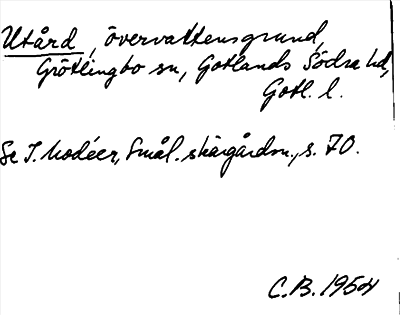 Utård, övervattensgrund,
Grötlingbo sn, Gotlands Södra hd,
Gotl. l.
Se I. Modéer, Smål. skärgårdsn., s. 70.
C.B. 1954